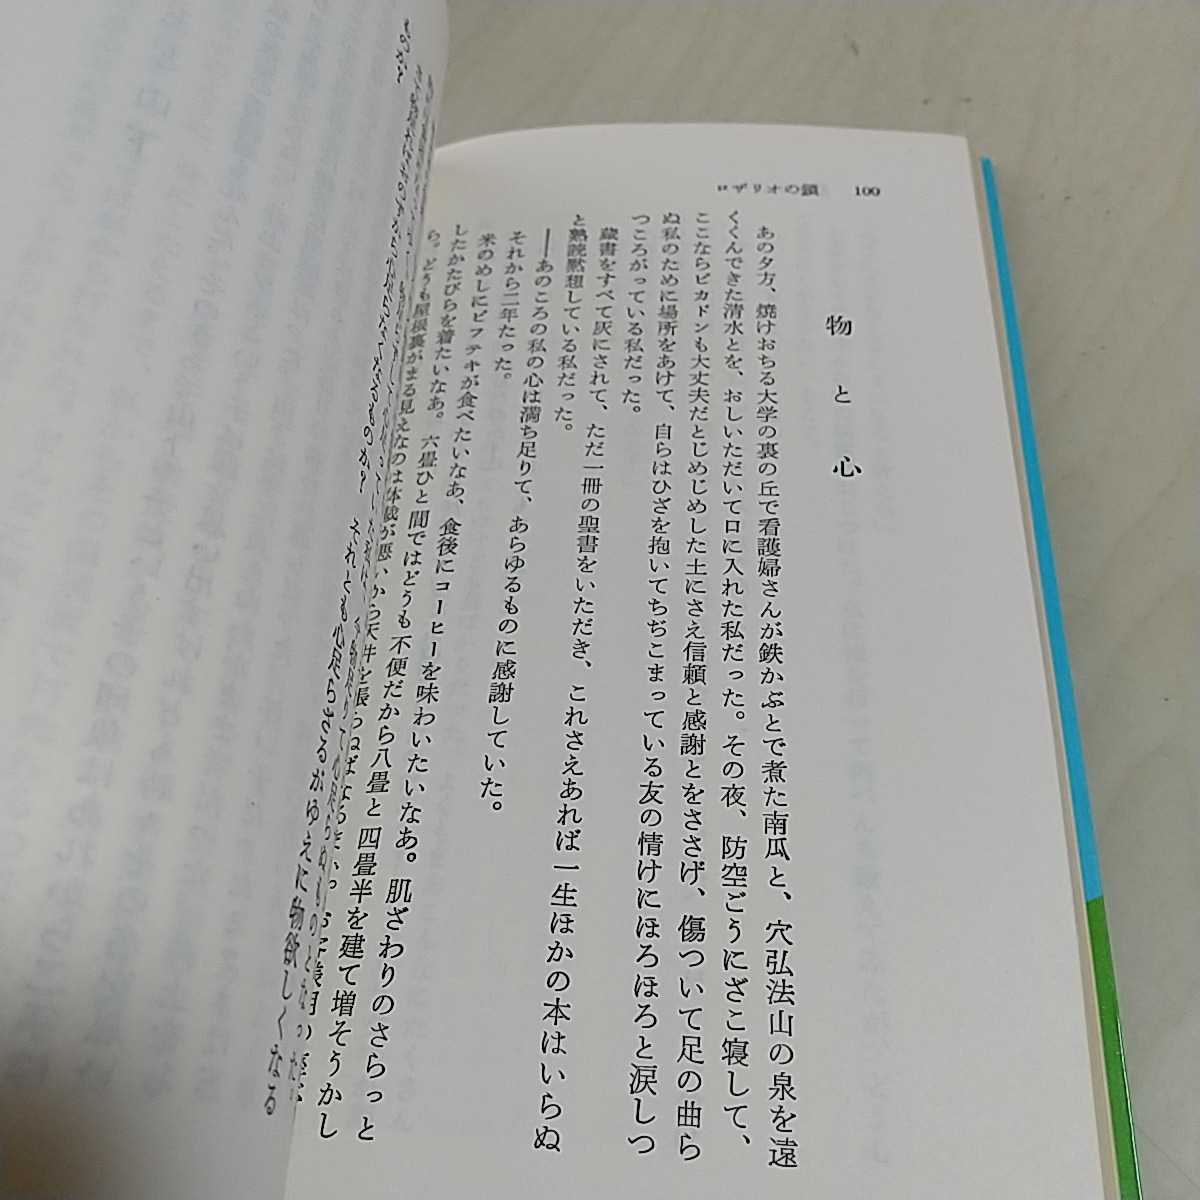 ロザリオの鎖 100
物と心
あの夕方、焼けおちる大学の裏の丘で看護婦さんが鉄かぶとで煮た南瓜と、穴弘法山の泉を遠
くくんできた清水とを、おしいただいて口に入れた私だった。その夜、防空ごうにざこ寝して、
ここならピカドンも大丈夫だとじめじめした土にさえ信頼と感謝とをささげ、傷ついて足の曲ら
ぬ私のために場所をあけて、自らはひざを抱いてちぢこまっている友の情けにほろほろと涙しつ
つころがっている私だった。
蔵書をすべて灰にされて、ただ一冊の聖書をいただき、これさえあれば一生ほかの本はいらぬ
と熟読黙想している私だった。
――あのころの私の心は満ち足りて、あらゆるものに感謝していた。
それから二年たった。
米のめしにビフテキが食べたいなあ、食後にコーヒーを味わいたいなあ。肌ざわりのさらっと
したかたびらを着たいなあ。六畳ひと間ではどうも不便だから八畳と四畳半を建て増そうかし
ら。どうも屋根裏がまる見えなのは体裁が悪いから天井を張らねばなるまい。
それとも心足らざるがゆえに物欲しくなる